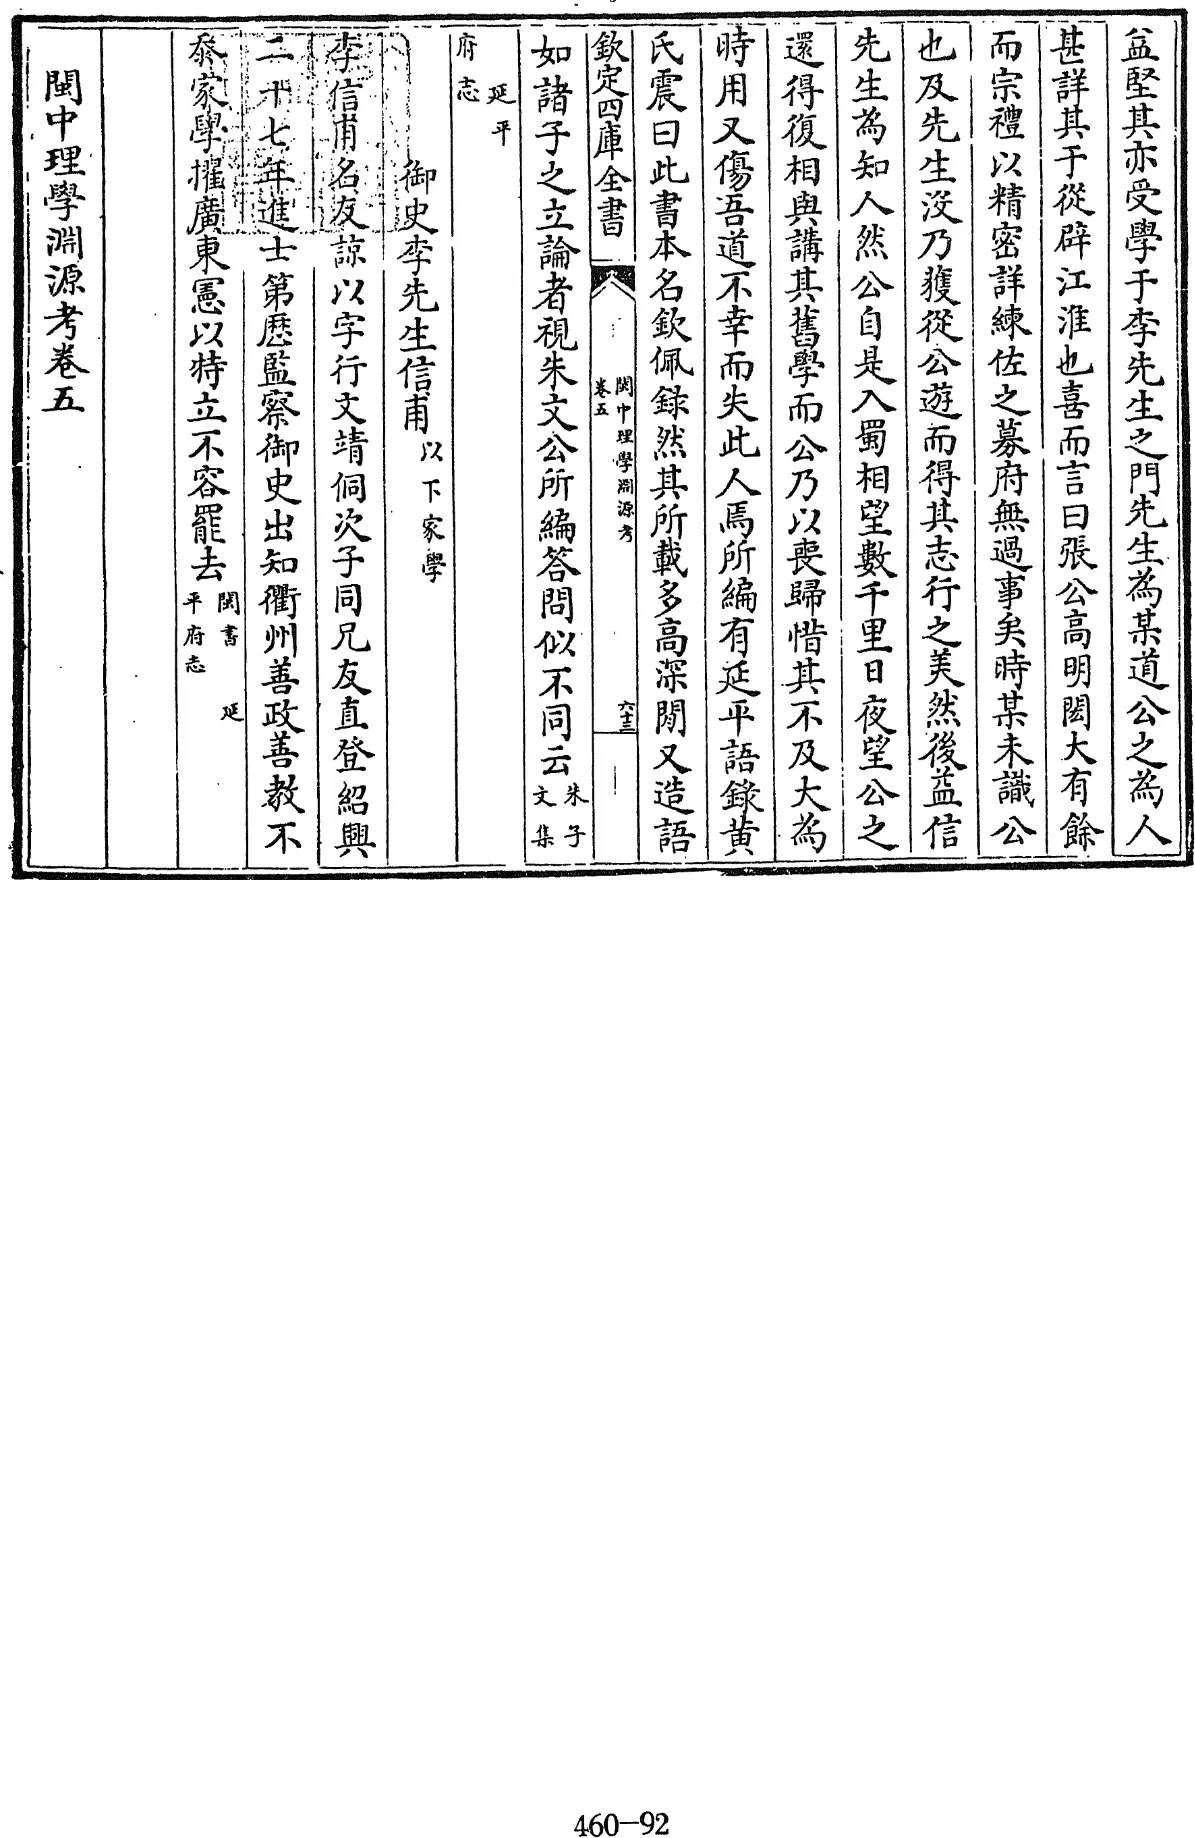 益堅某亦受學于李先生之門先生為某道公之為人
甚詳其于從辟江淮也喜而言曰張公高明閎大有餘
而宗禮以精密詳練佐之募府無過事矣時某未識公
也及先生沒乃獲從公遊而得其志行之美然後益信
先生為知人然公自是入蜀相望數千里日夜望公之
還得復相與講其舊學而公乃以喪歸惜其不及大為
時用又傷吾道不幸而失此人焉所編有延平語錄黄
氏震曰此書本名欽佩錄然其所載多高深閒又造語
欽定四庫全書
閩中理學淵源考
卷五
六十三
如諸子之立論者視朱文公所編答問似不同云朱子
文集
延平
府志
御史李先生信甫以下家學
李信甫名友諒以字行文靖侗次子同兄友直登紹興
二十七年進士第歷監察御史出知衢州善政善教不
忝家學擢廣東憲以特立不容罷去閩書 延
平府志
閩中理學淵源考卷五
460-92